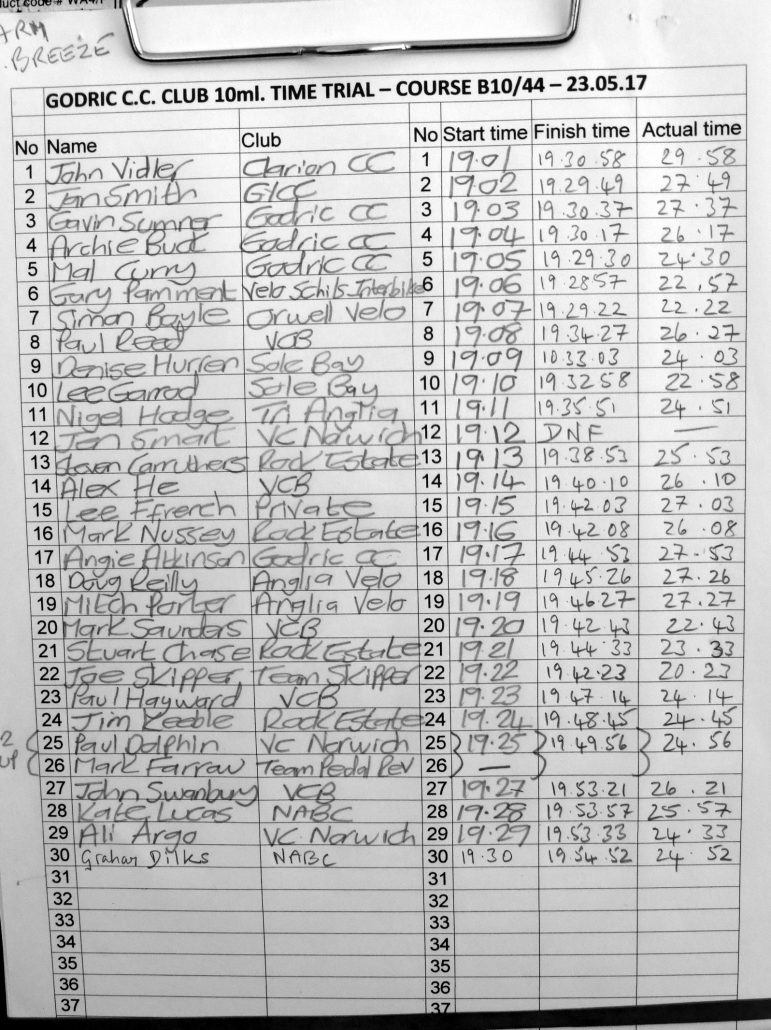 ARM
BREEZE
GODRIC C.C. CLUB 10ml. TIME TRIAL – COURSE B10/44 – 23.05.17
No Name Club No Start time Finish time Actual time
1 John Vidler Clarion CC 1 19.01 19.30.58 29.58
2 Jan Smith GICC 2 19.02 19.29.49 27.49
3 Gavin Sumner Godric CC 3 19.03 19.30.37 27.37
4 Archie Buck Godric CC 4 19.04 19.30.17 26.17
5 Mal Curry Godric CC 5 19.05 19.29.30 24.30
6 Gary Pamment Velo Schils Interbike 6 19.06 19.28 57 22.57
7 Simon Bayle Orwell Velo 7 19.07 19.29.22 22.22
8 Paul Reed VCB 8 19.08 19.34.27 26.27
9 Denise Hurren Sole Bay 9 19.09 10.33.03 24.03
10 Lee Garrod Sole Bay 10 19.10 19.32 58 22.58
11 Nigel Hodge Tri Anglia 11 19.11 19.35.51 24.51
12 Jen Smart VC Norwich 12 19.12 DNF —
13 Steven Carruthers Rock Estate 13 19.13 19.38.53 25.53
14 Alex He VCB 14 19.14 19.40.10 26.10
15 Lee Ffrench Private 15 19.15 19.42 03 27.03
16 Mark Nussey Rock Estate 16 19.16 19.42 08 26.08
17 Angie Atkinson Godric CC 17 19.17 19.44.53 27.53
18 Doug Reilly Anglia Velo 18 19.18 19 45.26 27.26
19 Mitch Porter Anglia Velo 19 19.19 19 46 27 27.27
20 Mark Saunders VCB 20 19.20 19.42.43 22.43
21 Stuart Chase Rock Estate 21 19.21 19.44.33 23.33
22 Joe Skipper Team Skipper 22 19.22 19.42.23 20.23
23 Paul Hayward VCB 23 19.23 19 47.14 24.14
24 Jim Keeble Rock Estate 24 19.24 19.48.45 24.45
2 25 Paul Dolphin VC Norwich 25 19.25 19.49.56 24.56
up 26 Mark Farrow Team Pedal Rev 26 —
27 John Swanbury VCB 27 19.27 19.53.21 26.21
28 Kate Lucas NABC 28 19.28 19.53.57 25.57
29 Ali Argo VC Norwich 29 19.29 19.53.33 24.33
30 Graham Dilks NABC 30 19.30 19.54.52 24.52
31 31
32 32
33 33
34 34
35 35
36 36
37 37